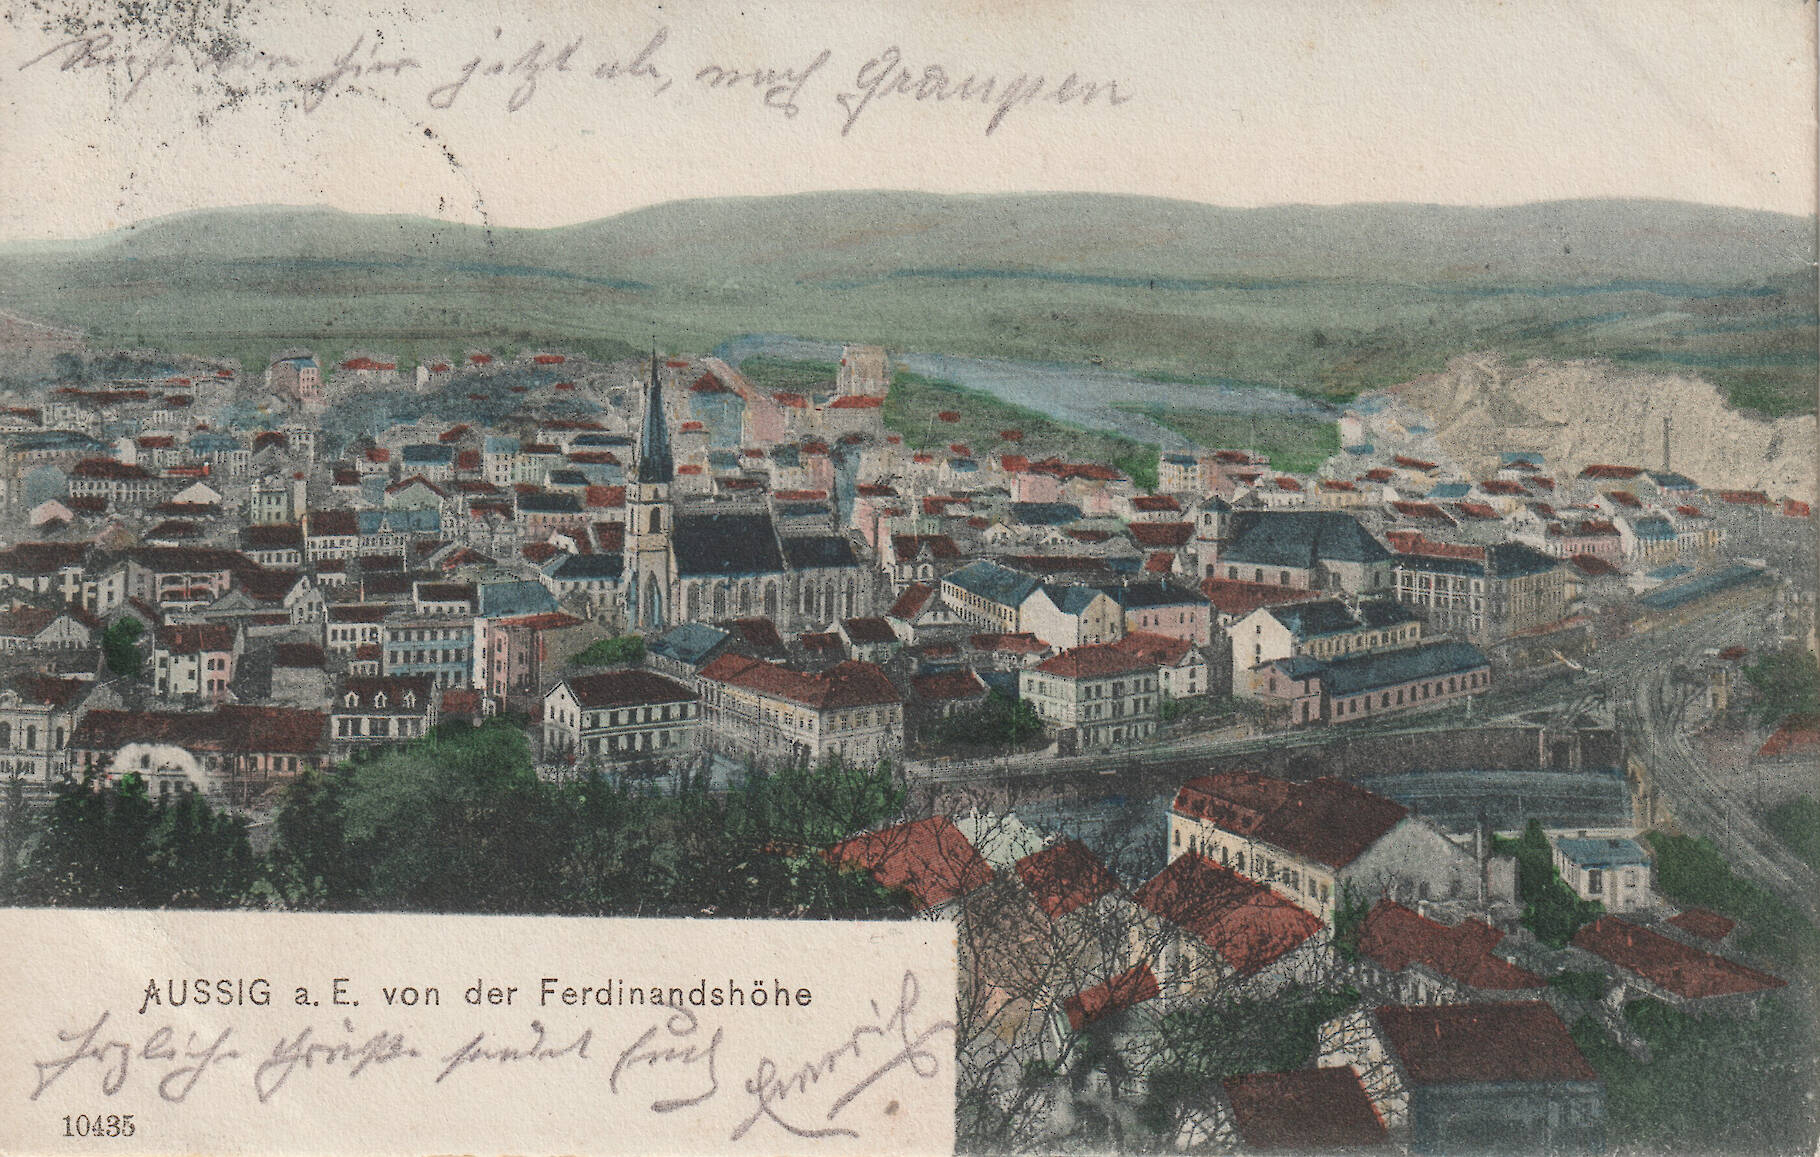 Reise von hier jetzt ab, nach Graupen
AUSSIG a. E. von der Ferdinandshöhe
Herzliche Grüße sendet Euch
10435